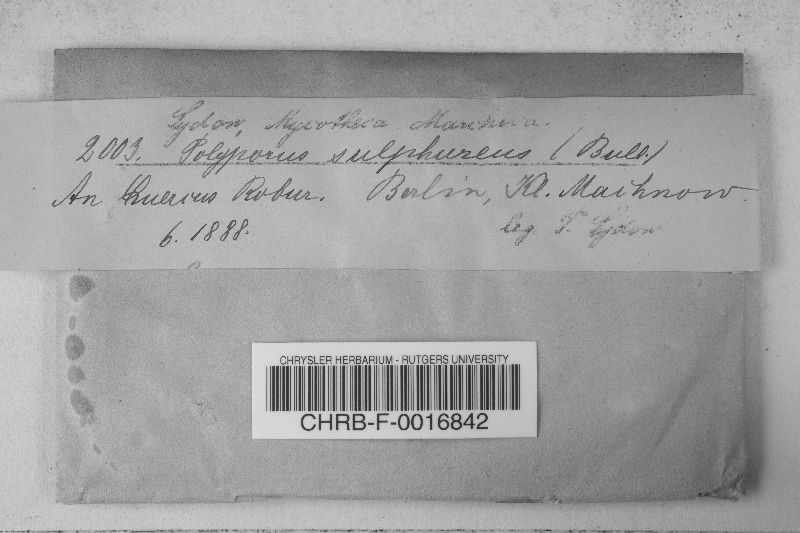 Sydow, Mycotheca Marchica.
2003. Polyporus sulphureus (Bull.)
An Quercus Robur. Berlin, Kl. Machnow.
6. 1888. leg. P. Sydow
CHRYSLER HERBARIUM - RUTGERS UNIVERSITY
CHRB-F-0016842